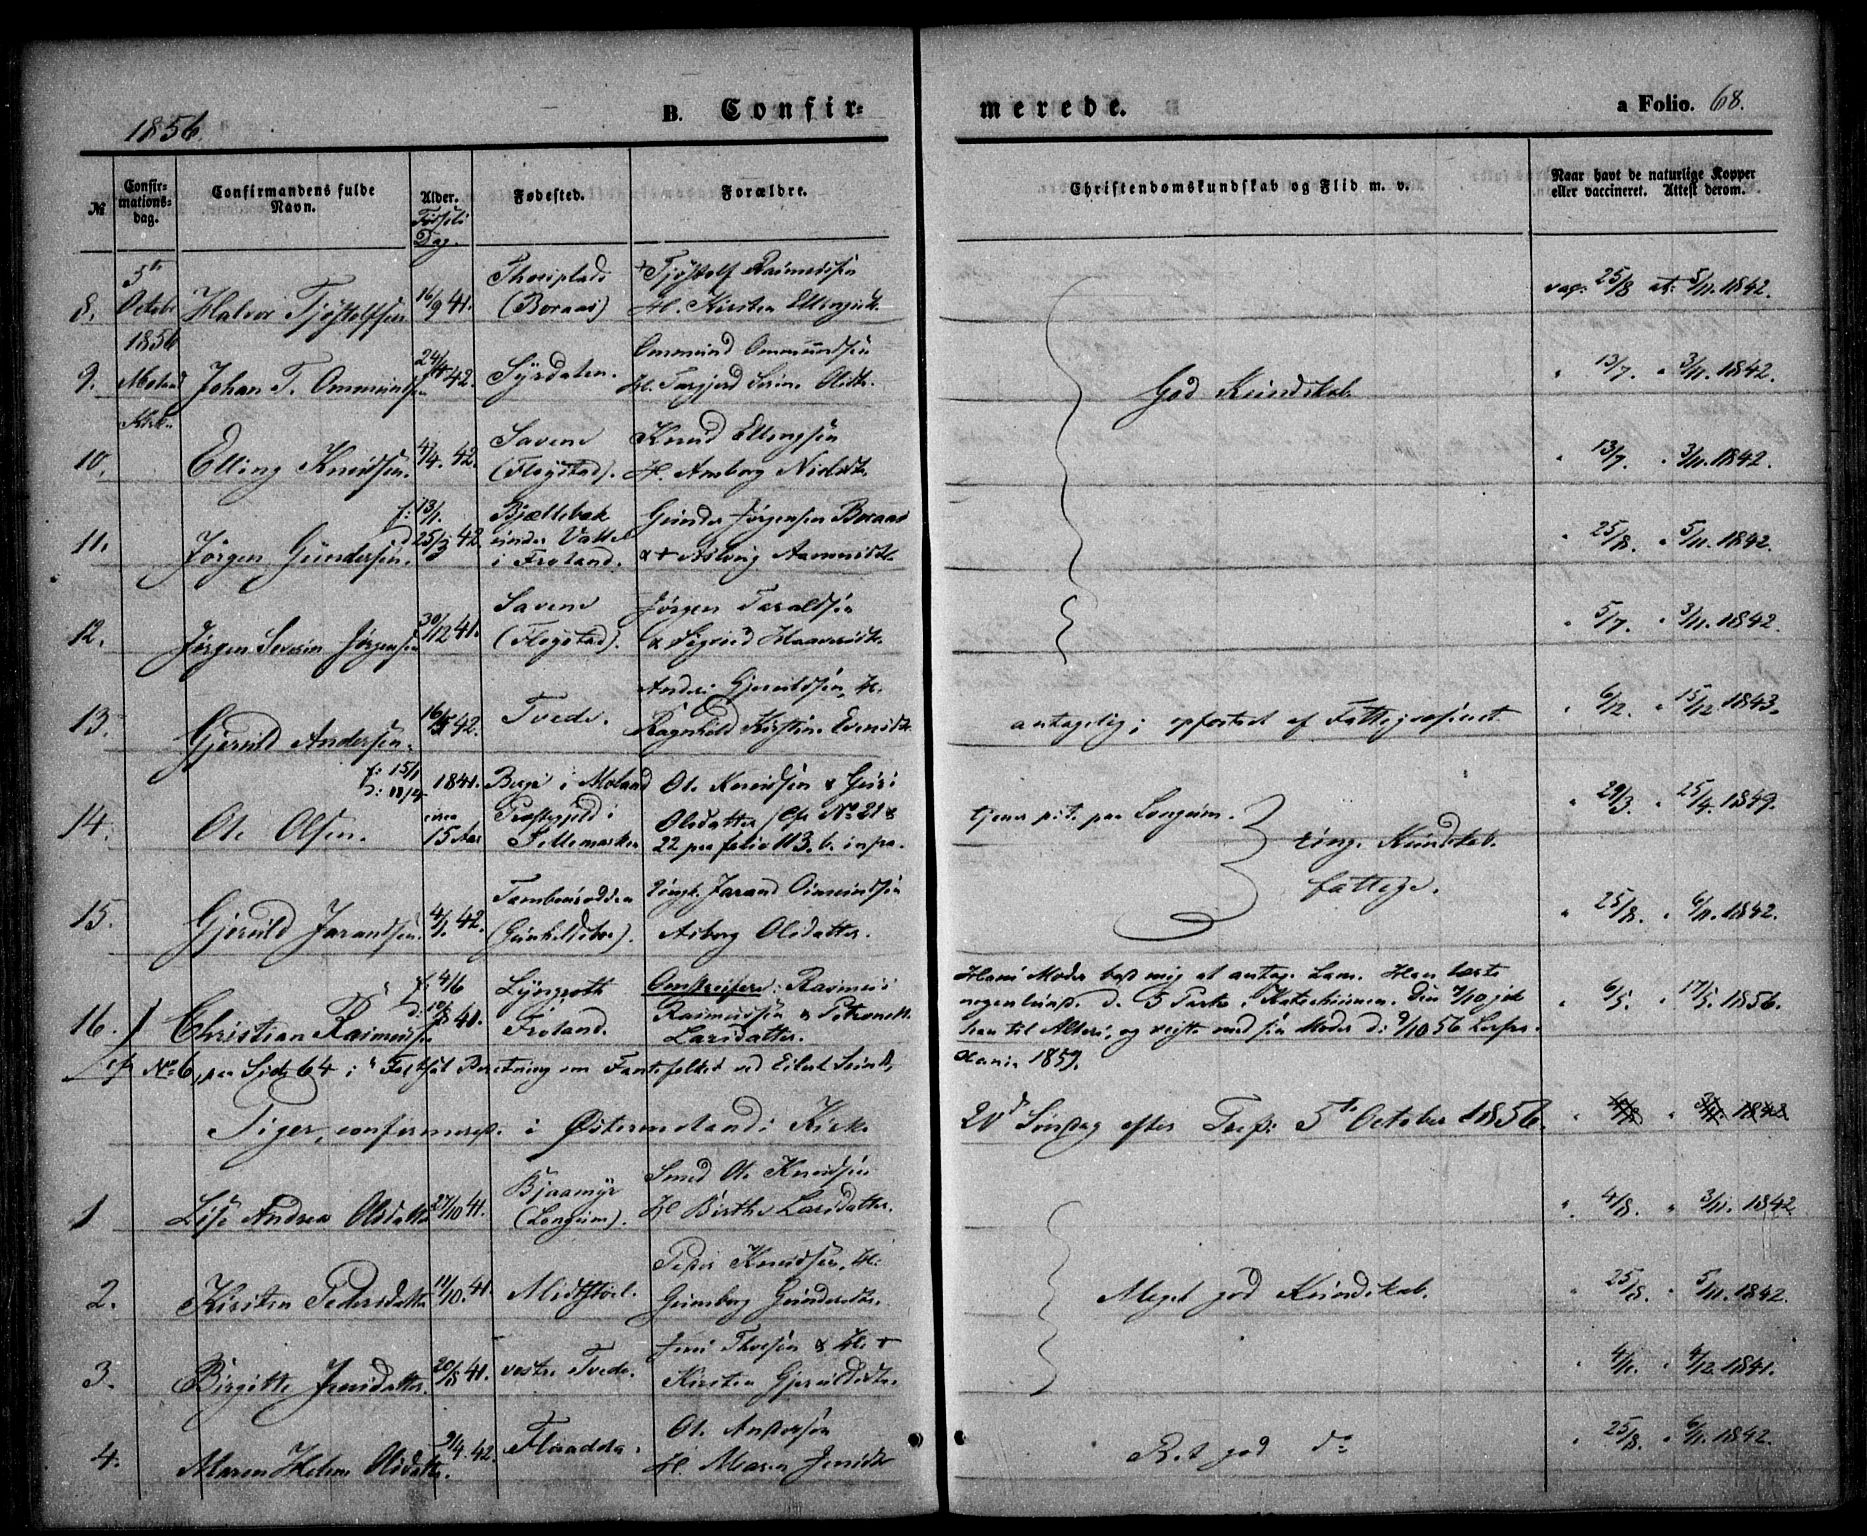 1856.
B. Confir-
merede.
a Folio. 68.
№
Confir-
mations-
dag.
Confirmandens fulde
Navn.
Alder.
Fødsels
Dag.
Fødested.
Forældre.
Christendomskundskab og Flid m. v.
Naar havt de naturlige Kopper
eller vaccineret. Attest derom.
8.
5te
Octobr
1856
Halvor Tjøstolfsen
16/9 41.
(Boraas)
+ Tjøstolf Rasmussen
H. Kirsten Ellingsdt.
vac: 25/8 at: 5/11. 1842.
9.
Moland
Kirke
Johan T. Ommundsen
42.
Ommund Ommundsen
H. Olsdtr.
" 13/7. " 3/11. 1842.
God Kundskab
10.
Elling Knudsen.
4/4. 42.
Savene
(Fløystad).
Knud Ellingsen
H. Nielsdtr.
" 13/7. " 3/11. 1842.
11.
Jørgen Gundersen.
f: 13/1.
d. 25/3 42.
Bjællebek
under
i Froland.
Gunder Jørgensen Boraas
& + Aslaug Aamundsdtr.
" 25/8. " 5/11. 1842.
12.
Jørgen Severin Jørgensen
30/12 41.
Savene
(Fløystad).
Jørgen Taraldsen
& Sigrid
" 5/7. " 3/11. 1842.
13.
Gjeruld Andersen.
42.
Tvede.
Anders Gjeruldsen, H.
Ragnhild Kirstine Evensdtr.
antagelig; opfostret af Fattigvæsenet.
" 6/12. " 15/12 1843.
14.
Ole Olsen.
f: 15/1
D: 11/4 1841.
circa
15 Aar
Berge i Moland
Præstegjeld i
Tellemarken
Ole Knudsen & Guri
Olsdatter (Cfr No 21 &
22 paa folio 113. b. infra.
tjener pt. paa Longum.
ringe Kundskab.
fattige.
" 29/3. " 25/4. 1849.
15.
Gjeruld Jarandsen.
4/1. 42.
(Gunhildsboe).
Jarand
Asborg Olsdatter.
" 25/8. " 6/11. 1842.
16.
Christian Rasmussen
f. 4/6
d. 10/8 41.
Lyngroth
Froland.
Omstreifere: Rasmus
Rasmussen & Petronelle
Larsdatter.
Hans Moder bad mig at antage ham. Han læste
nogenlunde de 5 Parter i Katechismen. Den 7/10 gik
han til Alters, og reiste med sin Moder d: 9/10 56
1859.
" 6/5. " 17/5. 1856.
cfr No 6, paa Side 64 i "Fortsat Beretning om Fantefolket" ved Eilert Sundt,
Piger, confirmerede i Østermolands Kirke
20de Søndag efter Tref: 5te October 1856.
1
Lise Andrea Olsdatter
27/10 41.
Bjaamyr
(Longum).
Smed Ole Knudsen
H. Birthe Larsdatter.
" 4/8. " 3/11. 1842
2.
Kirsten Pedersdatter
11/10. 41.
Midtstøl.
Peder Knudsen, H.
Gunborg Gundersdtr.
Meget god Kundskab.
" 25/8. " 5/11. 1842.
3.
Birgitte Jensdatter.
20/8 41.
vestre Tvede.
Jens Thorsen & H. +
Kirsten Gjeruldsdtr.
" 4/11. " 4/12. 1841.
4.
Maren Helene Olsdatter.
9/4. 42.
Fløradda.
Ole Andersen
H. Maren Jensdtr
Ret god do
" 25/8. " 6/11. 1842.